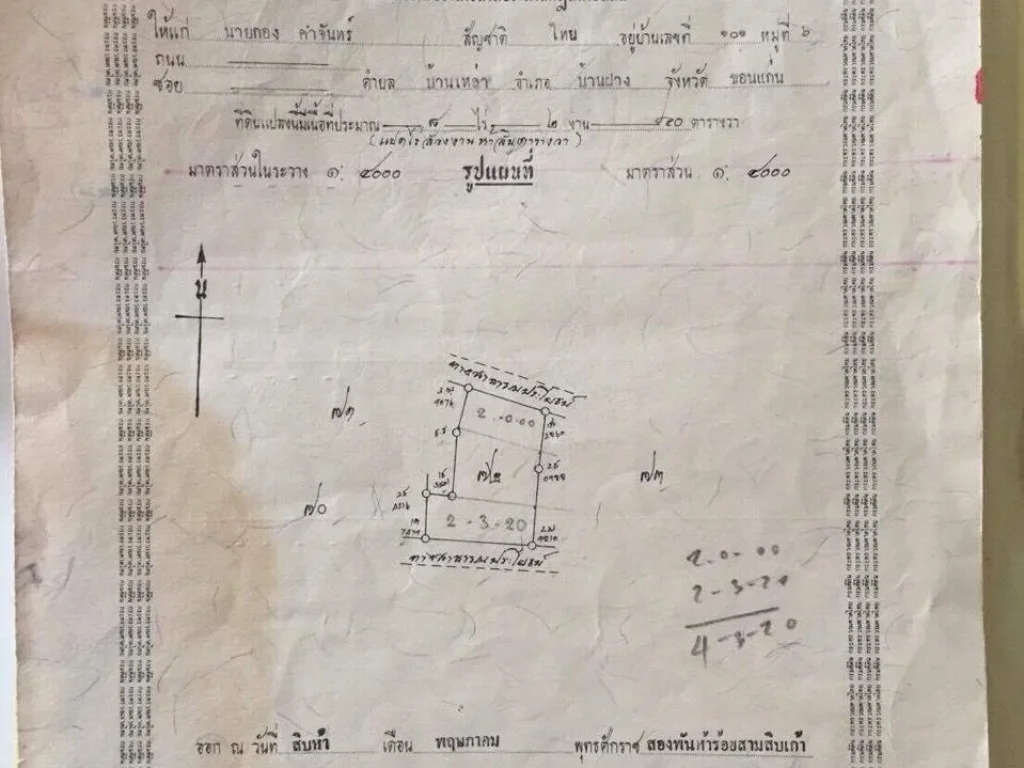 ให้แก่ นายกอง คำจันทร์ สัญชาติ ไทย อยู่บ้านเลขที่ ๑๐๑ หมู่ที่ ๖
ถนน
ซอย ตำบล บ้านเหล่า อำเภอ บ้านฝาง จังหวัด ขอนแก่น
ที่ดินแปลงนี้มีเนื้อที่ประมาณ ๘ ไร่ ๒ งาน ๕๐ ตารางวา
(แปดไร่สองงานห้าสิบตารางวา)
มาตราส่วนในระวาง ๑: ๔๐๐๐ รูปแผนที่ มาตราส่วน ๑: ๔๐๐๐
น
ทางสาธารณประโยชน์
2-0-00
๗๑
๗๒
๗๓
๗๐
2-3-20
ทางสาธารณประโยชน์
2-0-00
2-3-20
4-3-20
ออก ณ วันที่ สิบห้า เดือน พฤษภาคม พุทธศักราช สองพันห้าร้อยสามสิบเก้า